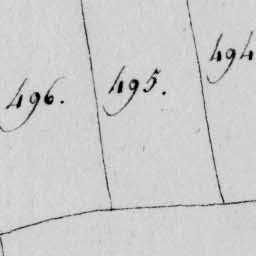 496. 495. 494